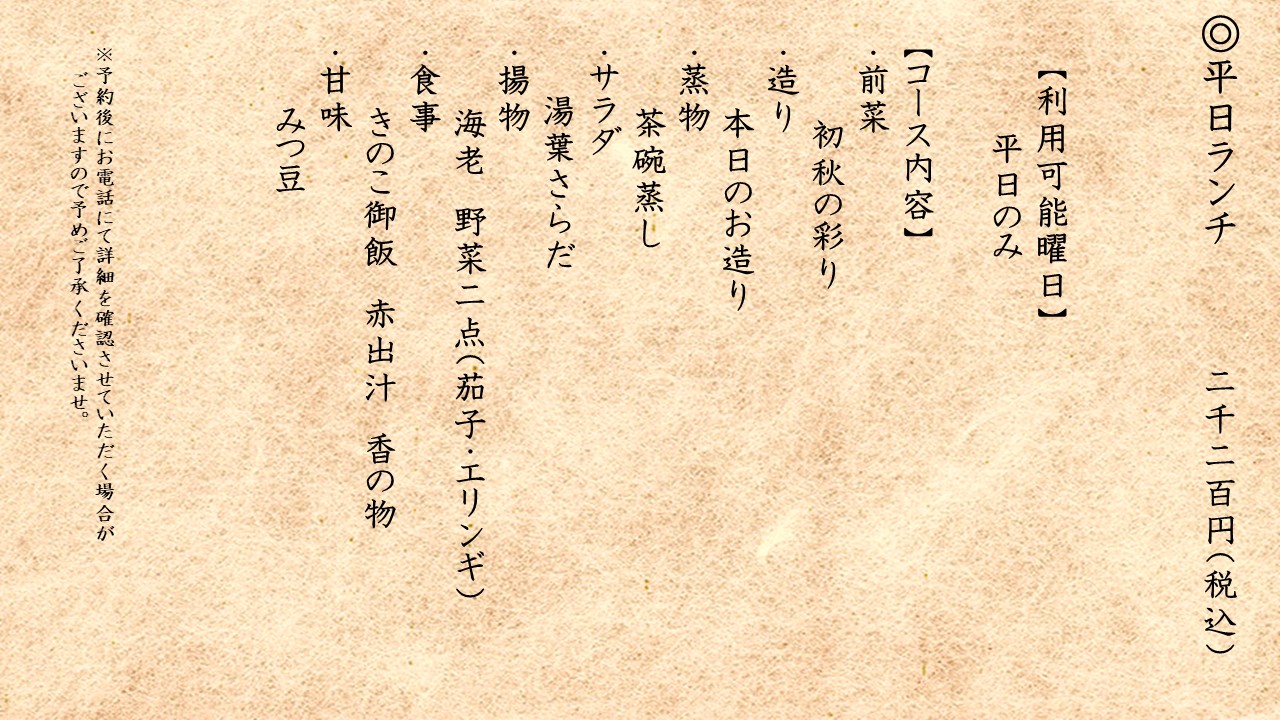 ◎平日ランチ　二千二百円(税込)
【利用可能曜日】
平日のみ
【コース内容】
・前菜
初秋の彩り
・造り
本日のお造り
・蒸物
茶碗蒸し
・サラダ
湯葉さらだ
・揚物
海老　野菜二点(茄子・エリンギ)
・食事
きのこ御飯　赤出汁　香の物
・甘味
みつ豆
※予約後にお電話にて詳細を確認させていただく場合が
ございますので予めご了承くださいませ。